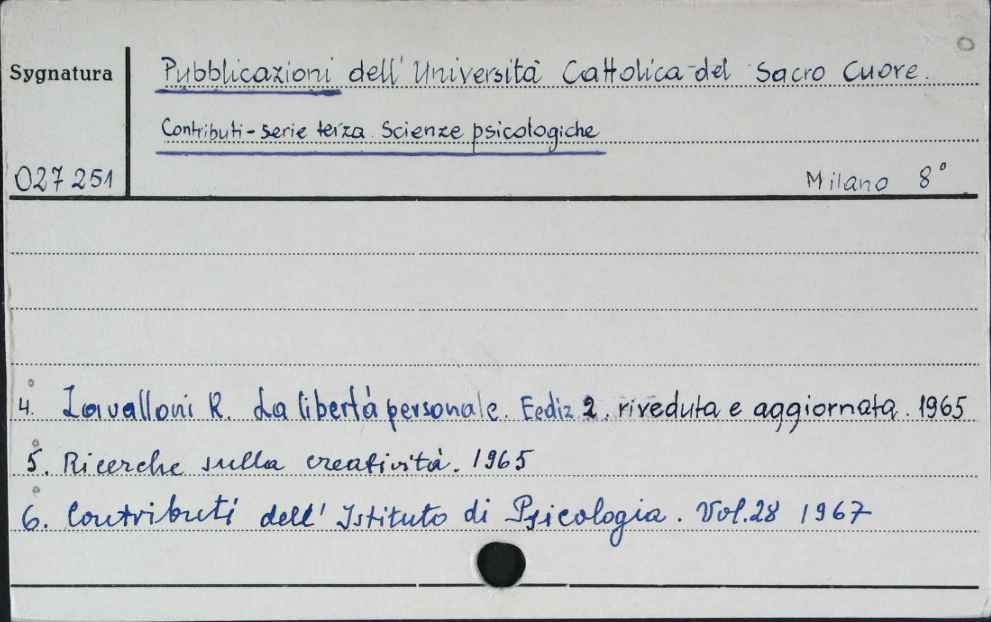 Sygnatura
Pubblicazioni dell' Università Cattolica del Sacro Cuore.
Contributi - serie terza. Scienze psicologiche
027 251
Milano 8°
4. Zavalloni R. La libertà personale. Eediz 2. riveduta e aggiornata. 1965
5. Ricerche sulla creatività. 1965
6. Contributi dell' Istituto di Psicologia. Vol. 28 1967